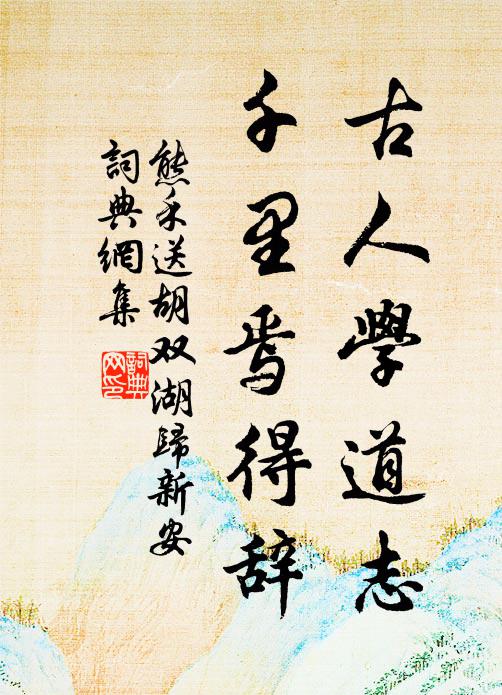 古人學道志
千里焉得辞
熊禾送胡双湖歸新安
詞典網集
詞典网印